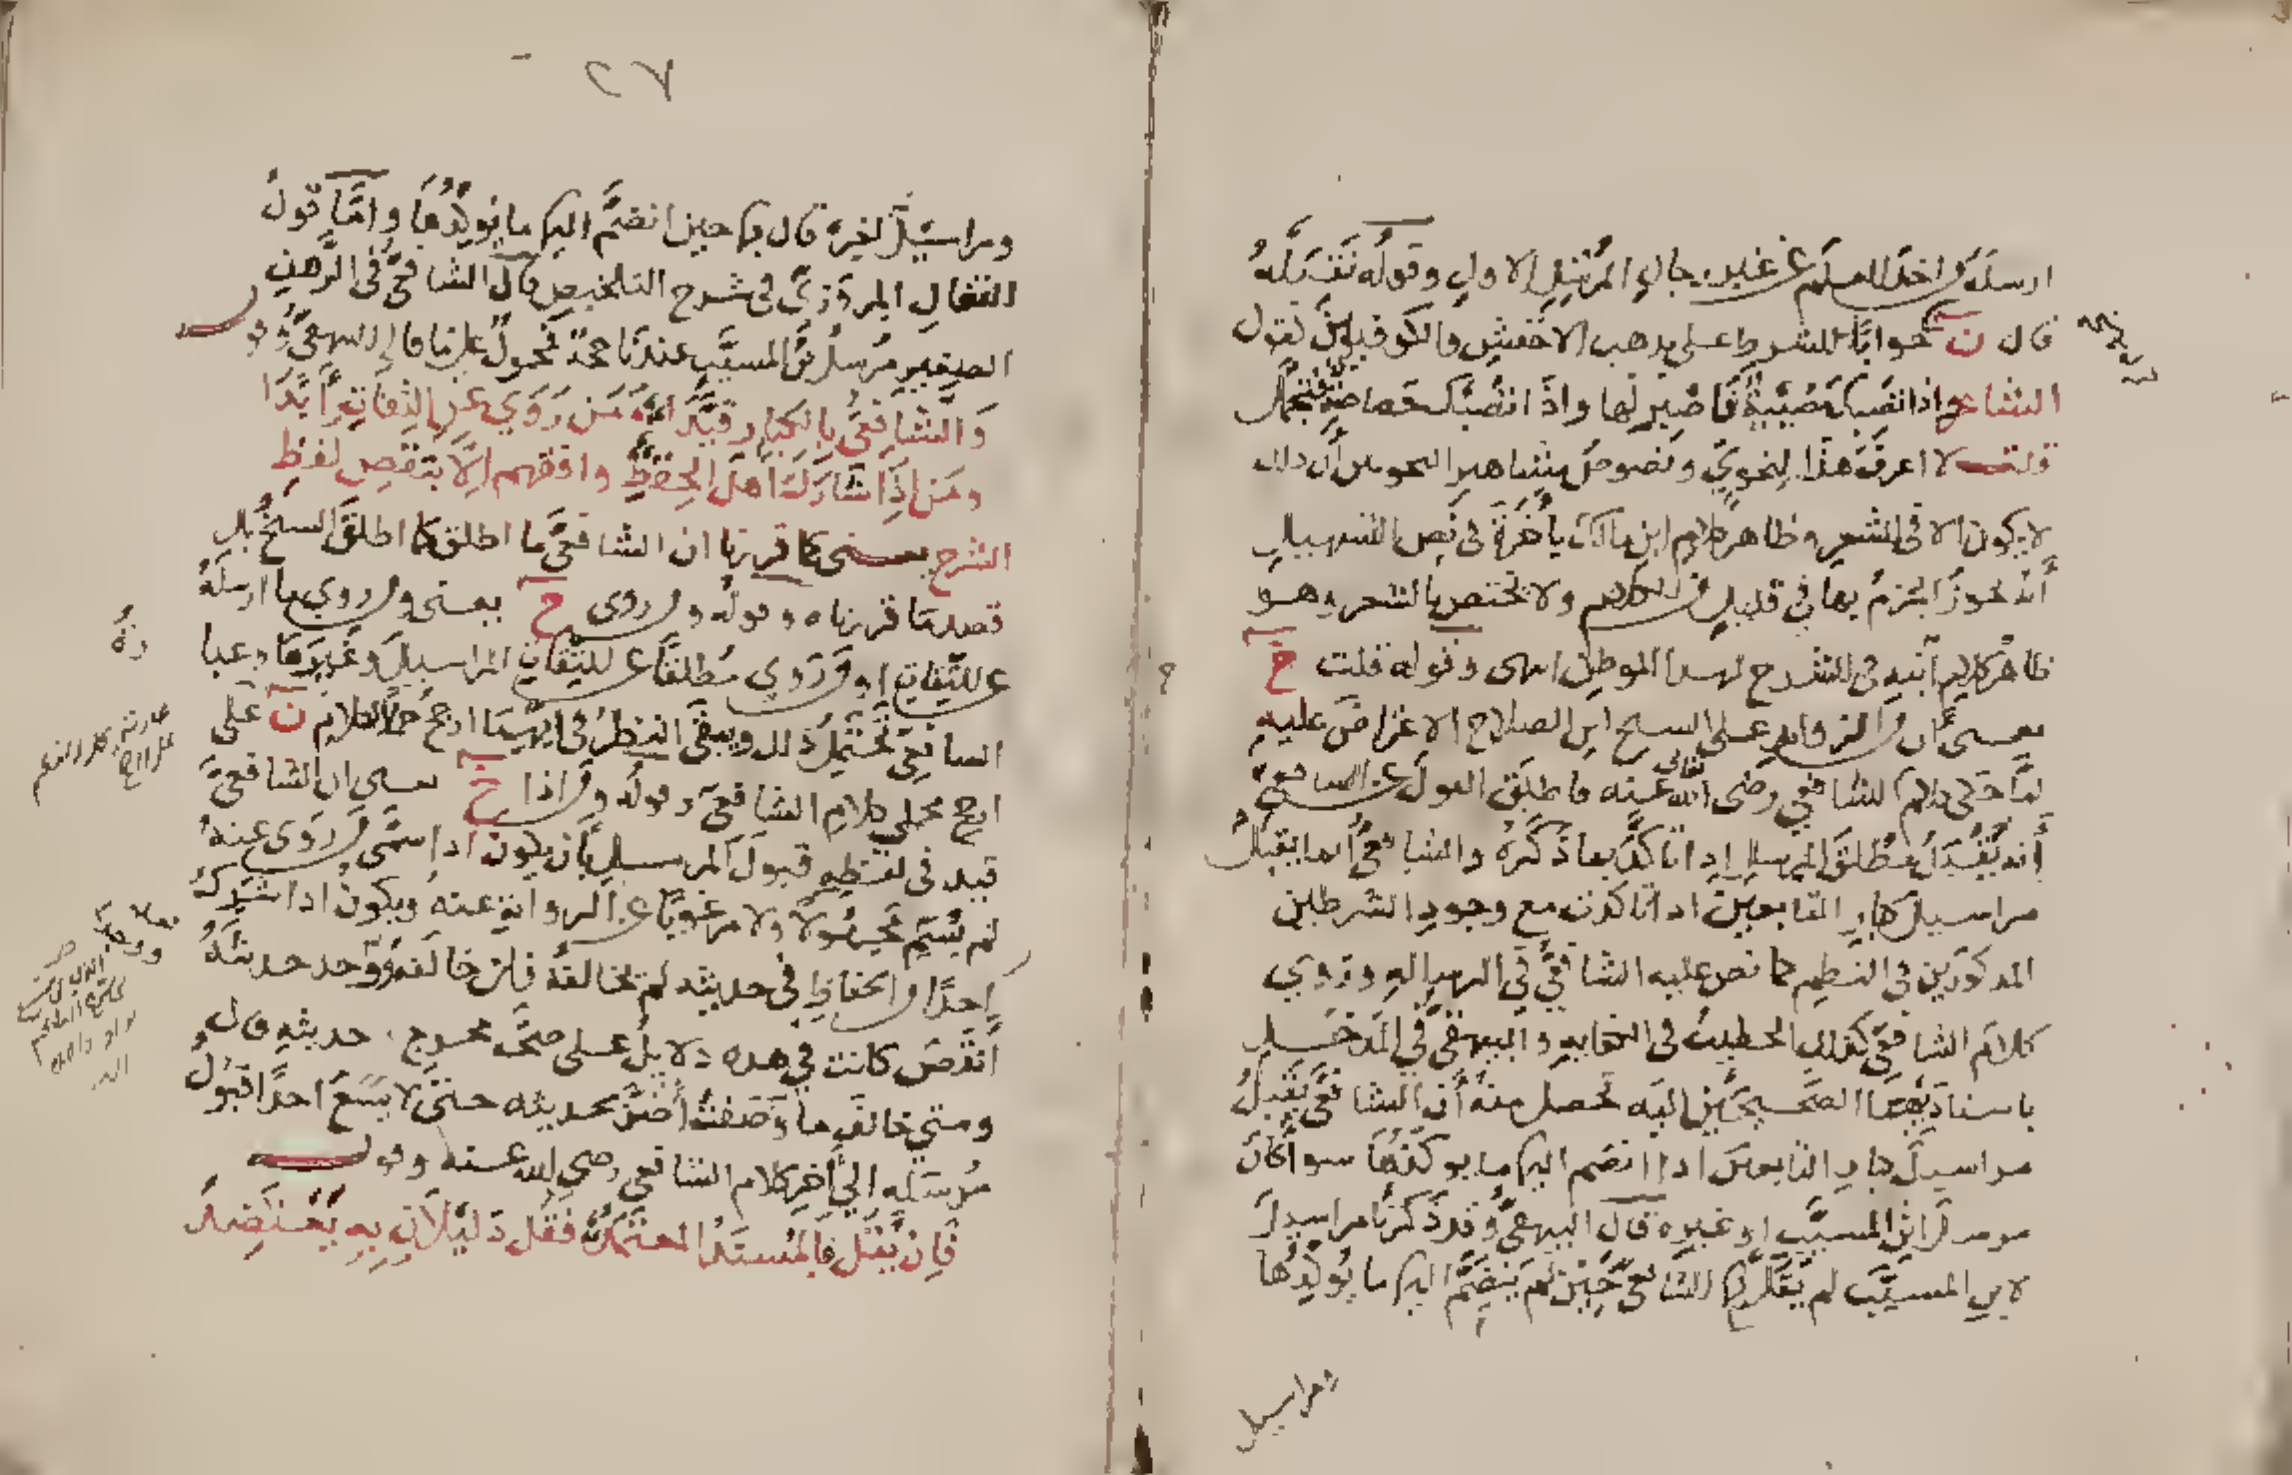 ارسله واخذ العلم عن غير رجال المرسل الاول وقوله نقبله
قال ن جوابا للشرط على مذهب الاخفش والكوفيين لقول
الشاعر واذا تصبك مصيبة فاصبر لها واذا تصبك خصاصة فتجمل
قلت لا اعرف هذا لنحوي ونصوص مشاهير النحويين ان ذلك
لا يكون الا في الشعر وظاهر كلام ابن مالك بأخرة في نص التسهيل
أنه يجوز الجزم بها في قليل من الكلام ولا يختص بالشعر وهو
ظاهر كلام ابنه في الشرح لهذا الموطن انتهى وقوله قلت خ
يعني أن من الزوائد على الشيخ ابن الصلاح الاعتراض عليه
لما حكى كلام الشافعي رضي الله تعالى عنه فاطلق القول عن الشافعي
أنه يقبل مطلق المرسل اذا تاكد بما ذكره والشافعي انما يقبل
مراسيل كبار التابعين اذا تاكدت مع وجود الشرطين
المذكورين في النظم كما نص عليه الشافعي في الرسالة وروي
كلام الشافعي كذلك الخطيب في الكفاية والبيهقي في المدخل
باسناديهما الصحيحين اليه فحصل منه أن الشافعي يقبل
مراسيل كبار التابعين اذا انضم اليها ما يوكدها سواء كان
مرسل ابن المسيب او غيره قال البيهقي وقد ذكرنا مراسيل
لابن المسيب لم يقل بها الشافعي حين لم ينضم اليها ما يوكدها
ومراسيل
٢٧
ومراسيل لغيره قال بها حين انضم اليها ما يوكدها واما قول
القفال المروزي في شرح التلخيص قال الشافعي في الرهن
الصغير مرسل ابن المسيب عندنا حجة فمحمول على ما قال البيهقي وقوله
والشافعي بالكبار قيدا ومن روى عن الثقات ابدا
ومن اذا شارك اهل الحفظ وافقهم الا بنقص لفظ
الشرح يعني كما قررنا ان الشافعي ما اطلق كما اطلق الشيخ بل
قيد بما قررناه وقوله ومن روى خ يعني ومن روى ما ارسله
عن الثقات او من روى مطلقا عن الثقات المراسيل وغيرها وعبارة
الشافعي تحتمل ذلك ويبقى النظر في ايهما ارجح حمل الكلام ن على
ارجح محملي كلام الشافعي وقوله ومن اذا خ يعني ان الشافعي
قيد في لفظه قبول المرسل بأن يكون اذا سمى من روى عنه
لم يسم مجهولا ولا مرغوبا عن الرواية عنه ويكون اذا شرك
احدا من الحفاظ في حديثه لم يخالفه فان خالفه ووجد حديثه
أنقص كانت في هذه دلايل على صحة مخرج حديثه قال
ومتى خالف ما وصفت أضر بحديثه حتى لا يسع احدا قبول
مرسله الى آخر كلام الشافعي رضي الله عنه وقوله
فان يقل فالمسند المعتمد فقل دليلان به يعتضد